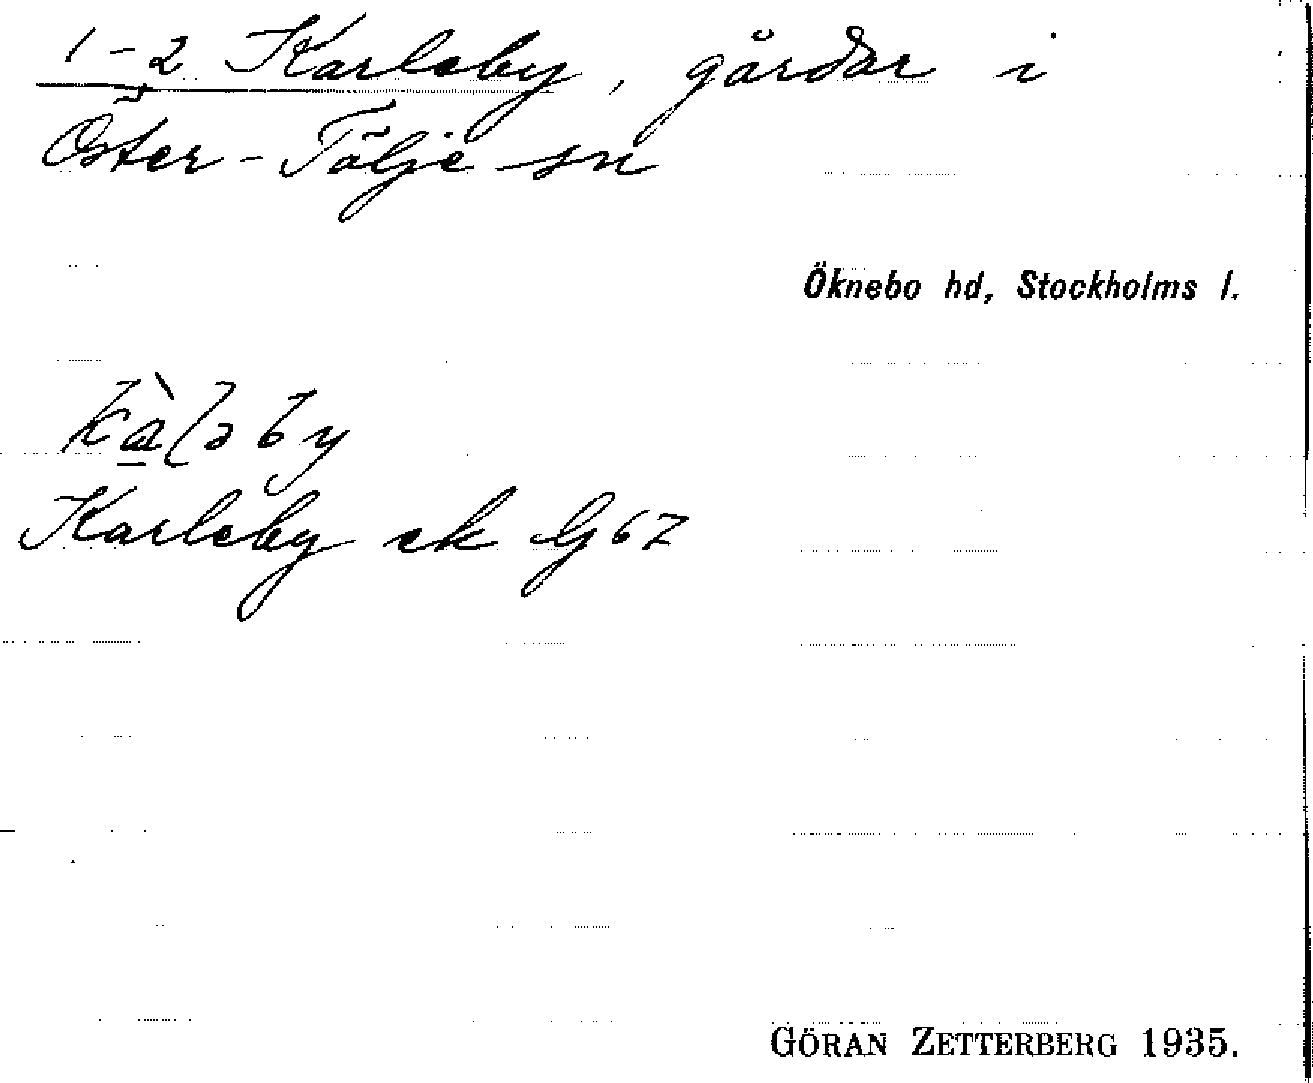 1-2 Karleby, gårdar i
Öster-Tälje sn
Öknebo hd, Stockholms l.
Karleby ek G 67
GÖRAN ZETTERBERG 1935.